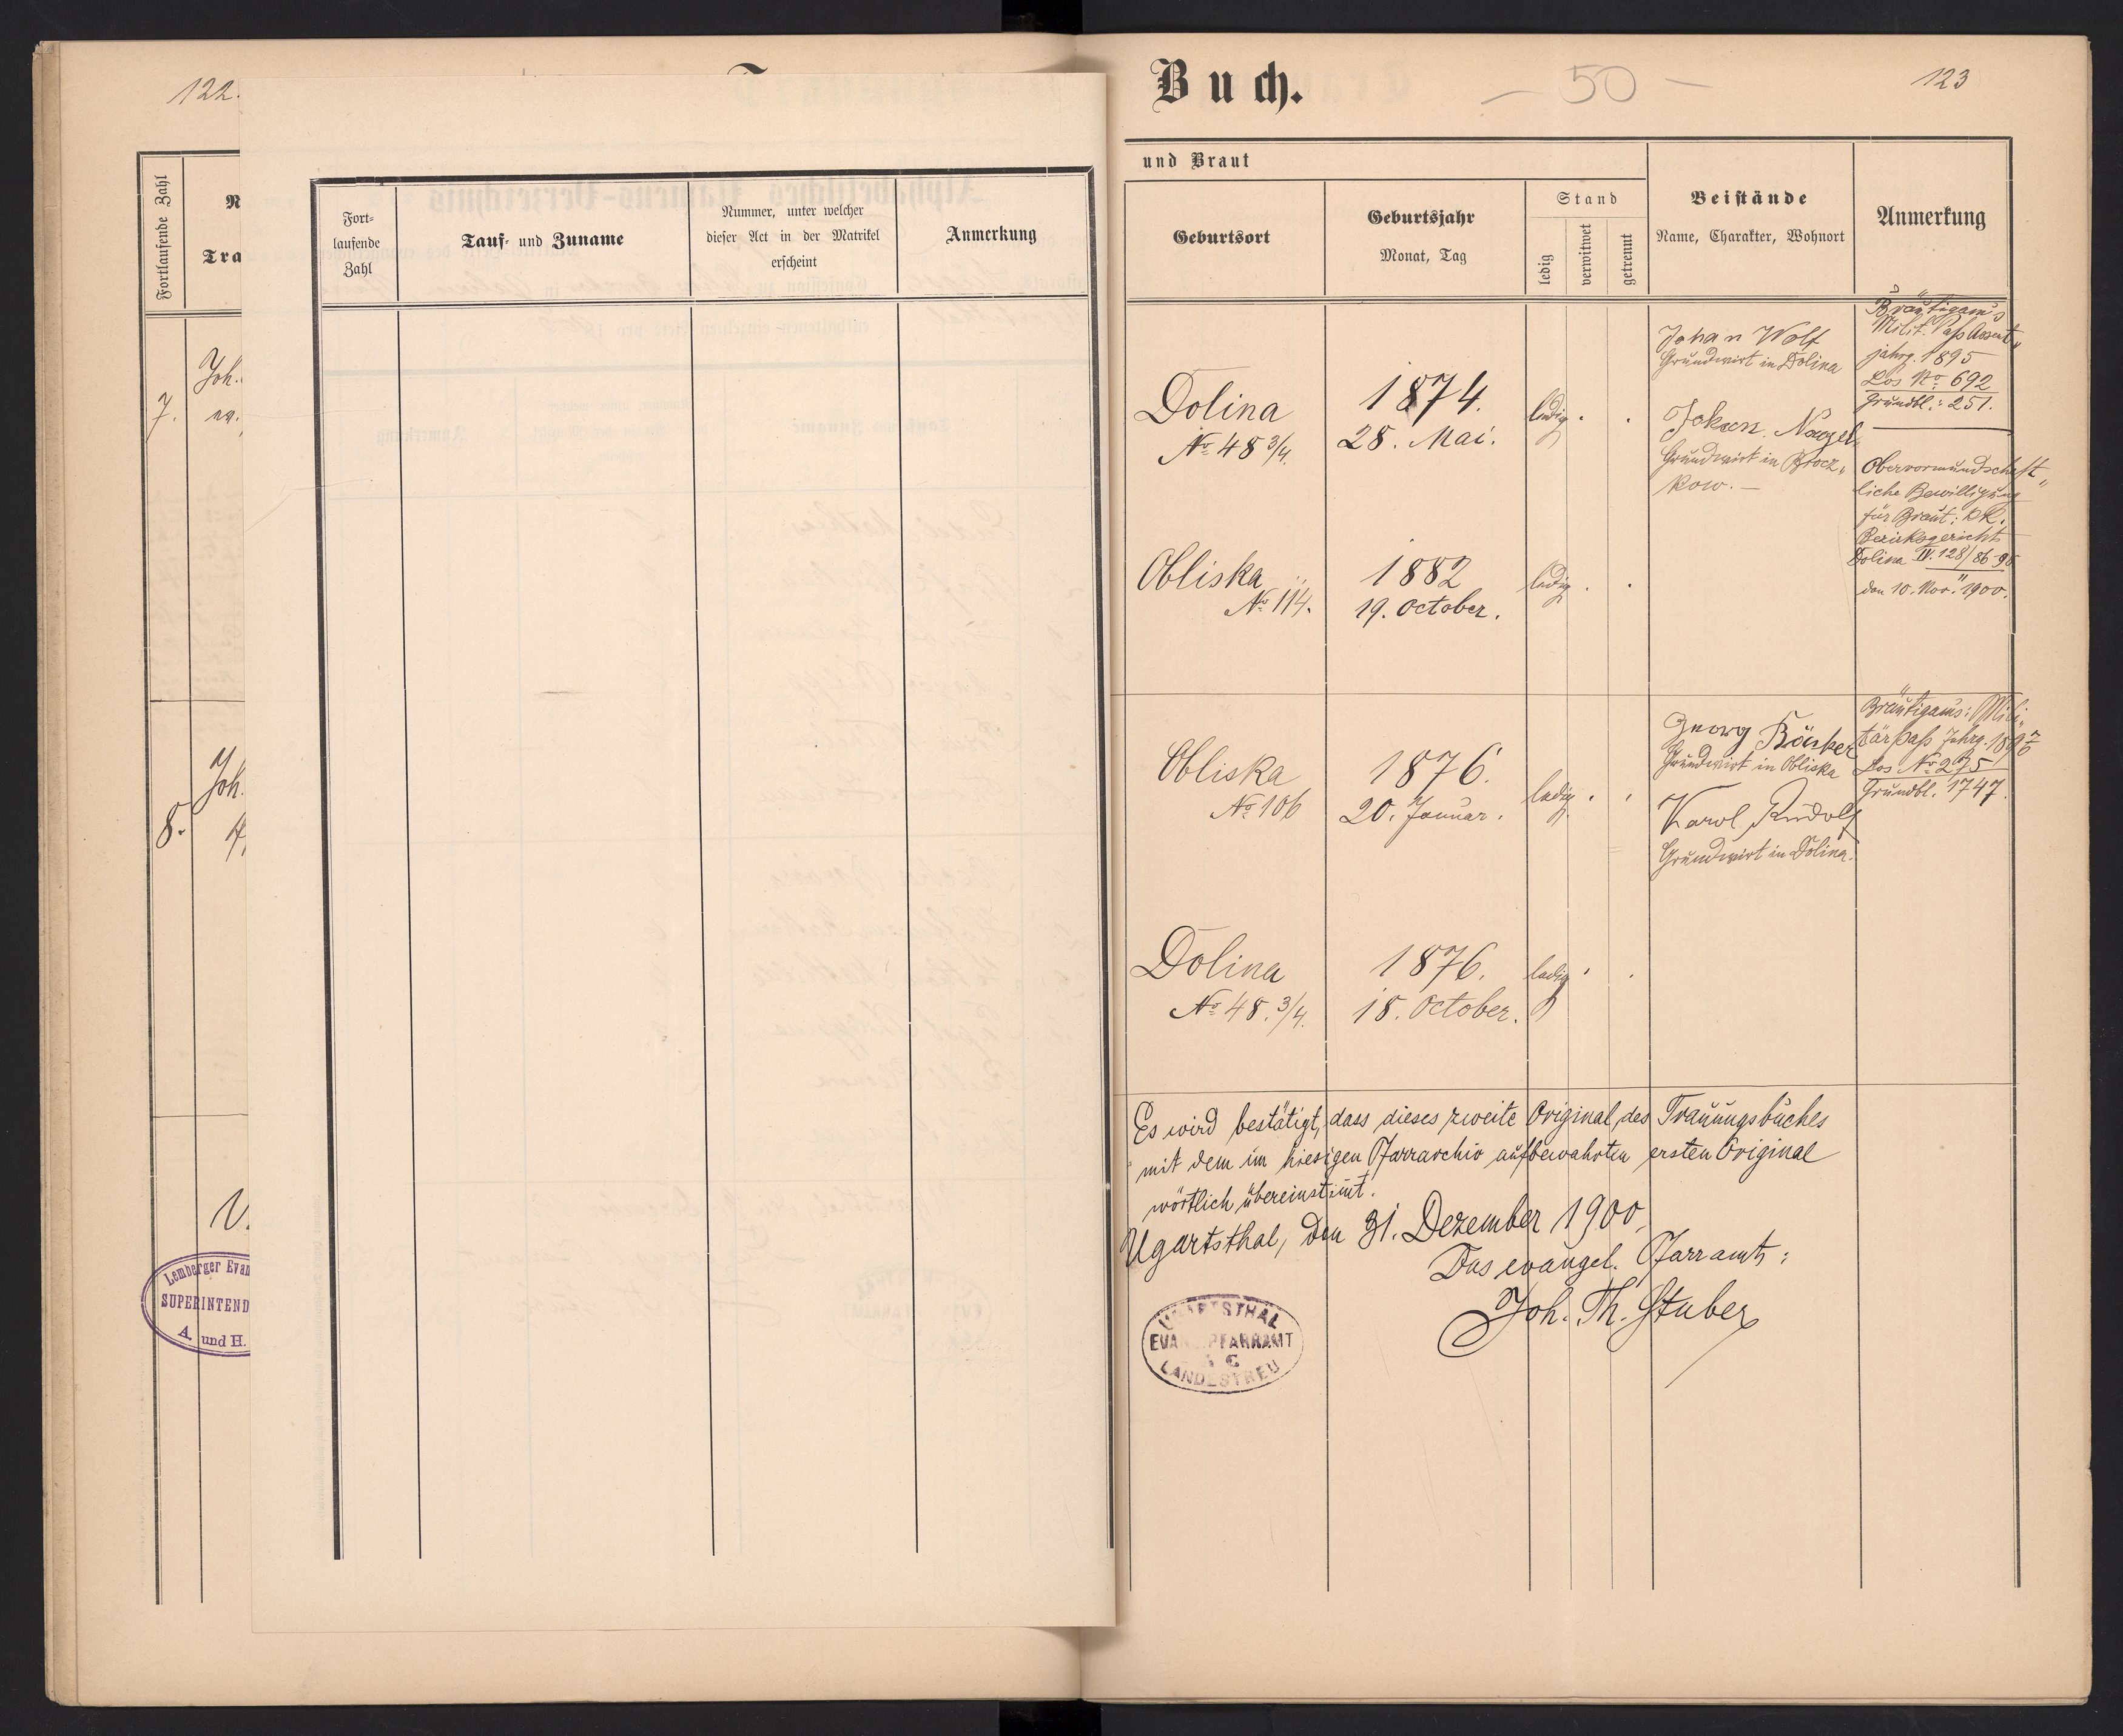 122.
Fortlaufende Zahl
N
Tra
7.
Joh.
ev.,
8.
Joh.
V.
Lemberger Evan
SUPERINTEND
A. und H.
Fort-
laufende
Zahl
Tauf- und Zuname
Nummer, unter welcher
dieser Act in der Matrikel
erscheint
Anmerkung
Buch.
– 50 –
123
und Braut
Geburtsort
Geburtsjahr
Monat, Tag
Stand
ledig
verwitwet
getrennt
Beistände
Name, Charakter, Wohnort
Anmerkung
Dolina
No 48 3/4.
1874.
28. Mai.
ledig . .
Johan Wolf
Grundwirt in Dolina
Johan Nagel
Grundwirt in Brocz„
kow. —
Bräutigam's
Milit. Paß Assent„
jahrg. 1895
Los No 692
Grundbl.: 251.
Obervormundschaft„
liche Bewilligung
für Braut: k.k.
Bezirksgericht
Dolina IV. 128/86-95
den 10. Nov. 1900.
Obliska
No 114.
1882
19. October.
ledig . .
Obliska
No 106
1876.
20. Januar.
ledig . .
Georg
Grundwirt in Obliska
Karol Rudolf
Grundwirt in Dolina.
Bräutigams: Mili„
tärpaß Jahrg.
Los No 275
Grundbl. 1747.
Dolina
No 48. 3/4.
1876.
18. October.
ledig . .
Es wird bestätigt, dass dieses zweite Original des Trauungsbuches
mit dem im hiesigen Pfarrarchiv aufbewahrten ersten Original
wörtlich übereinstimt.
Ugartsthal, den 31. Dezember 1900.
Das evangel. Pfarramt:
Joh. Th. Stuber
UGARTSTHAL
EVANG. PFARRAMT
LANDESTREU